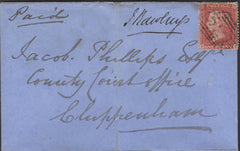 Paid
Jacob. Phillips Esq
County Court office
Chippenham